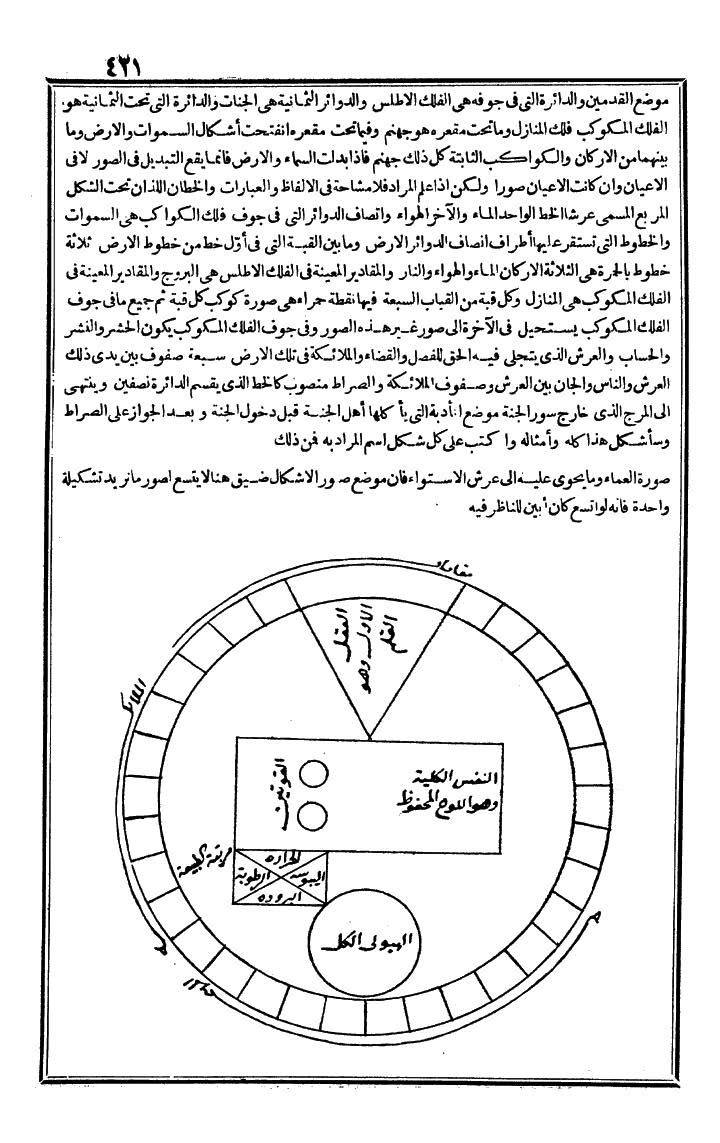 ٤٢١
موضع القدمين والدائرة التى فى جوفه هى الفلك الاطلس والدوائر الثمانية هى الجنات والدائرة التى تحت الثمانية هو
الفلك المكوكب فلك المنازل وما تحت مقعره هو جهنم وفيما تحت مقعره انفتحت أشكال السموات والارض وما
بينهما من الاركان والكواكب الثابتة كل ذلك جهنم فاذا بدلت السماء والارض فانما يقع التبديل فى الصور لا فى
الاعيان وان كانت الاعيان صورا ولكن اذا علم المراد فلا مشاحة فى الالفاظ والعبارات والخطان اللذان تحت الشكل
المربع المسمى عرشا الخط الواحد الماء والآخر الهواء وانصاف الدوائر التى فى جوف فلك الكواكب هى السموات
والخطوط التى تستقر عليها أطراف انصاف الدوائر الارض وما بين القبة التى فى أوّل خط من خطوط الارض ثلاثة
خطوط بالحمرة هى الثلاثة الاركان الماء والهواء والنار والمقادير المعينة فى الفلك الاطلس هى البروج والمقادير المعينة فى
الفلك المكوكب هى المنازل وكل قبة من القباب السبعة فيها نقطة حمراء هى صورة كوكب كل قبة ثم جميع ما فى جوف
الفلك المكوكب يستحيل فى الآخرة الى صور غير هذه الصور وفى جوف الفلك المكوكب يكون الحشر والنشر
والحساب والعرش الذى يتجلى فيه الحق للفصل والقضاء والملائكة فى تلك الارض سبعة صفوف بين يدى ذلك
العرش والناس والجان بين العرش وصفوف الملائكة والصراط منصوب كالخط الذى يقسم الدائرة نصفين وينتهى
الى المرج الذى خارج سور الجنة موضع المأدبة التى يأكلها أهل الجنة قبل دخول الجنة و بعد الجواز على الصراط
وسأشكل هذا كله وأمثاله وا كتب على كل شكل اسم المراد به فمن ذلك
صورة العماء وما يحوى عليه الى عرش الاستواء فان موضع صور الاشكال ضيق هنا لا يتسع لصور ما نريد تشكيله
واحدة فانه لو اتسع كان أبين للناظر فيه
القلم
الاول وهو
العقل
النفس الكلية
وهو اللوح المحفوظ
القوتين
الحراره
اليبوسه
الرطوبة
البروده
الهيولى الكل